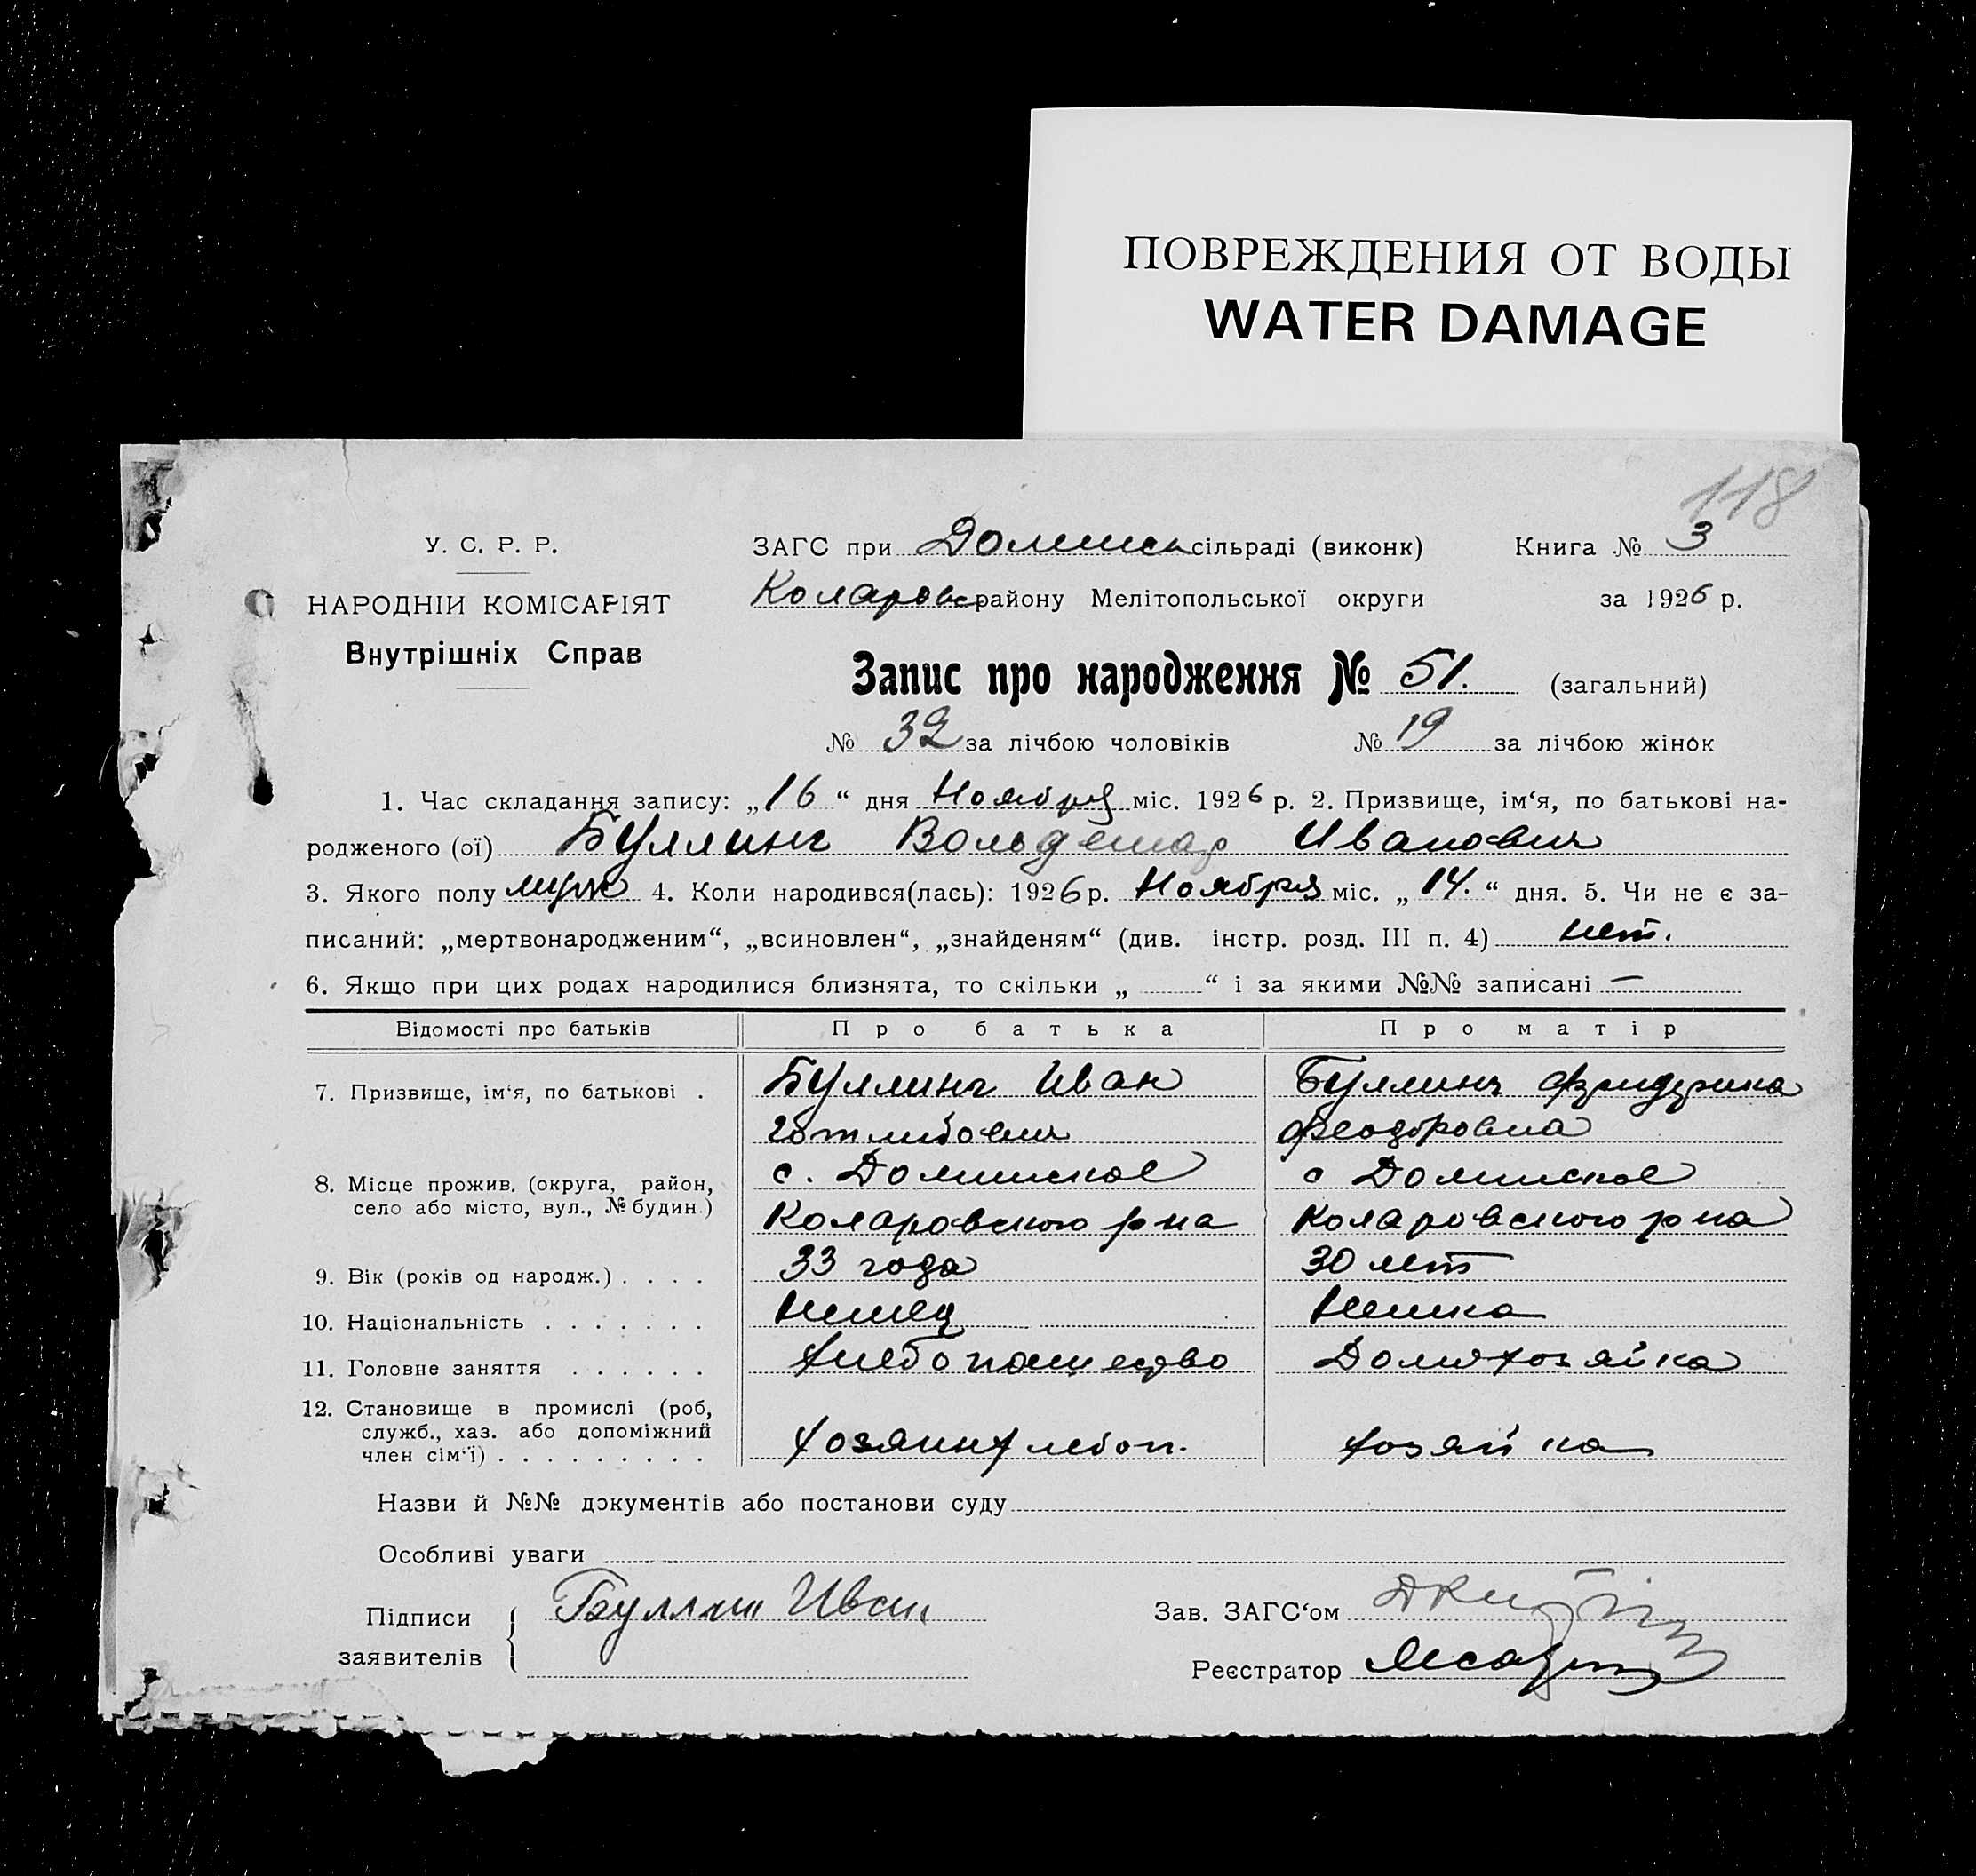 ПОВРЕЖДЕНИЯ ОТ ВОДЫ
WATER DAMAGE
118
У. С. Р. Р.
ЗАГС при Долинск сільраді (виконк) Книга № 3
НАРОДНІЙ КОМІСАРІЯТ
Коларовс району Мелітопольської округи за 1926 р.
Внутрішніх Справ
Запис про народження № 51. (загальний)
№ 32 за лічбою чоловіків № 19 за лічбою жінок
1. Час складання запису: „16“ дня Ноября міс. 1926 р. 2. Призвище, ім‘я, по батькові на-
родженого (ої) Буллинг Вольдемар Иванович
3. Якого полу муж 4. Коли народився(лась): 1926 р. Ноября міс. „14.“ дня. 5. Чи не є за-
писаний: „мертвонародженим“, „всиновлен“, „знайденям“ (див. інстр. розд. III п. 4) нет.
6. Якщо при цих родах народилися близнята, то скільки „ “ і за якими №№ записані —
Відомості про батьків Про батька Про матір
7. Призвище, ім‘я, по батькові . Буллинг Иван Буллинг Фридерика
Готлибович Феодоровна
8. Місце прожив. (округа, район, с. Долинское с Долинское
село або місто, вул., № будин.) Коларовского р на Коларовского р на
9. Вік (років од народж.) . . . . 33 года 30 лет
10. Національність . . . . . . . Немец Немка
11. Головне заняття . . . . . . Хлебопашество Домохозяйка
12. Становище в промислі (роб,
служб., хаз. або допоміжний
член сім‘ї) . . . . . . . . . Хозяин хлебоп. хозяйка
Назви й №№ документів або постанови суду
Особливі уваги
Підписи
заявителів Буллинг Иван
Зав. ЗАГС‘ом
Реєстратор